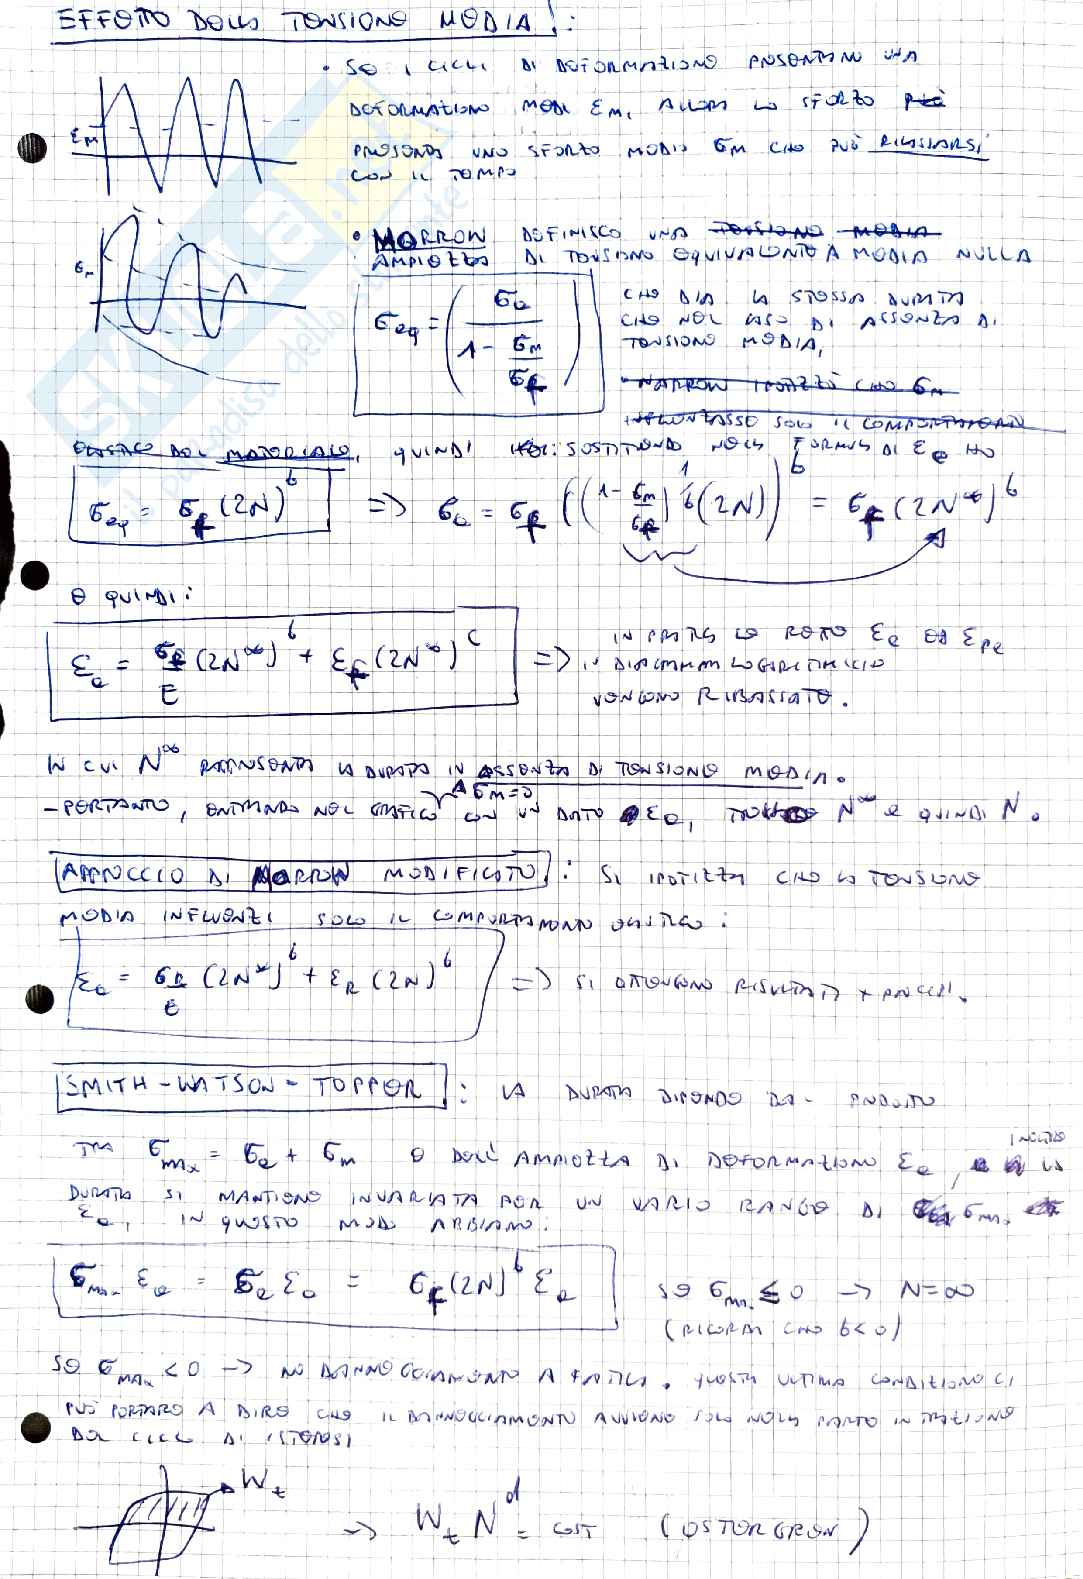 EFFETTO DELLA TENSIONE MEDIA:
• SE I CICLI DI DEFORMAZIONE PRESENTANO UNA
DEFORMAZIONE MEDIA εm, ALLORA LO SFORZO
PRESENTA UNO SFORZO MEDIO σm CHE PUÒ RILASSARSI
CON IL TEMPO
εm
σm
• MORROW DEFINISCE UNA TENSIONE MEDIA
AMPIEZZA DI TENSIONE EQUIVALENTE A MEDIA NULLA
σeq = (σa / (1 - σm/σf))
CHE DIA LA STESSA DURATA
CHE NEL CASO DI ASSENZA DI
TENSIONE MEDIA,
• MARROW IPOTIZZÒ CHE σm
INFLUENZASSE SOLO IL COMPORTAMENTO
ELASTICO DEL MATERIALE, QUINDI SOSTITUENDO NELLA FORMULA DI εe HO
σeq = σf (2N)^b => σa = σf ((1 - σm/σf)^(1/b) (2N))^b = σf (2N^∞)^b
E QUINDI:
εa = σf/E (2N^∞)^b + εf (2N^∞)^c => IN PRATICA LE RETTE εe ED εpe
IN DIAGRAMMA LOGARITMICO
VENGONO RIBASSATE.
IN CUI N^∞ RAPPRESENTA LA DURATA IN ASSENZA DI TENSIONE MEDIA.
A σm=0
- PERTANTO, ENTRANDO NEL GRAFICO CON UN DATO εa, TROVO N^∞ E QUINDI N.
APPROCCIO DI MORROW MODIFICATO: SI IPOTIZZA CHE LA TENSIONE
MEDIA INFLUENZI SOLO IL COMPORTAMENTO ELASTICO:
εa = σR/E (2N^∞)^b + εR (2N)^b => SI OTTENGONO RISULTATI + PRECISI.
SMITH-WATSON-TOPPER: LA DURATA DIPENDE DAL PRODOTTO
TRA σmax = σa + σm E DELL'AMPIEZZA DI DEFORMAZIONE εa, INOLTRE LA
DURATA SI MANTIENE INVARIATA PER UN VARIO RANGE DI σmax
εa, IN QUESTO MODO ABBIAMO:
σmax εa = σa εa = σf (2N)^b εa SE σmax ≤ 0 → N=∞
(RICORDA CHE b<0)
SE σmax < 0 → NO DANNEGGIAMENTO A FATICA. QUESTA ULTIMA CONDIZIONE CI
PUÒ PORTARE A DIRE CHE IL DANNEGGIAMENTO AVVIENE SOLO NELLA PARTE IN TRAZIONE
DEL CICLO DI ISTERESI
Wt
→ Wt N^d = COST (OSTERGREN)